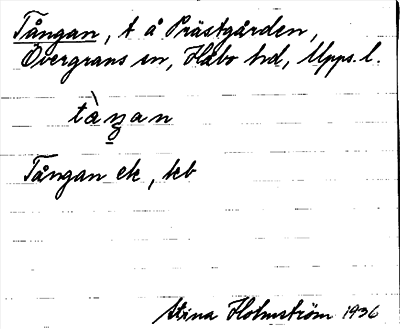 Tångan, t å Prästgården,
Övergrans sn, Håbo hd, Upps. l.
tàŋan
Tångan ek, kb
Stina Holmström 1936